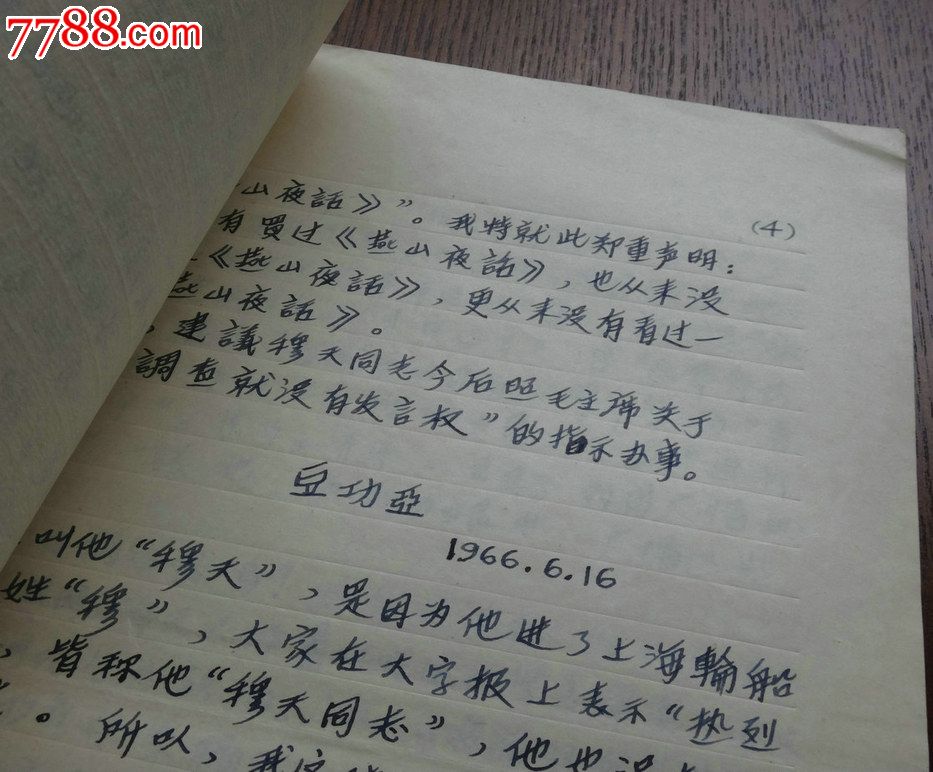 7788.com
(4)
山夜話》”。我特就此郑重声明：
有買过《燕山夜話》，也从来没
《燕山夜話》，更从来没有看过一
燕山夜話》。
，建議穆天同志今后照毛主席关于
調查就没有发言权”的指示办事。
豆功亞
1966.6.16
叫他“穆天”，是因为他进了上海輪船
姓“穆”，大家在大字报上表示“热烈
，皆称他“穆天同志”，他也没
。所以，我